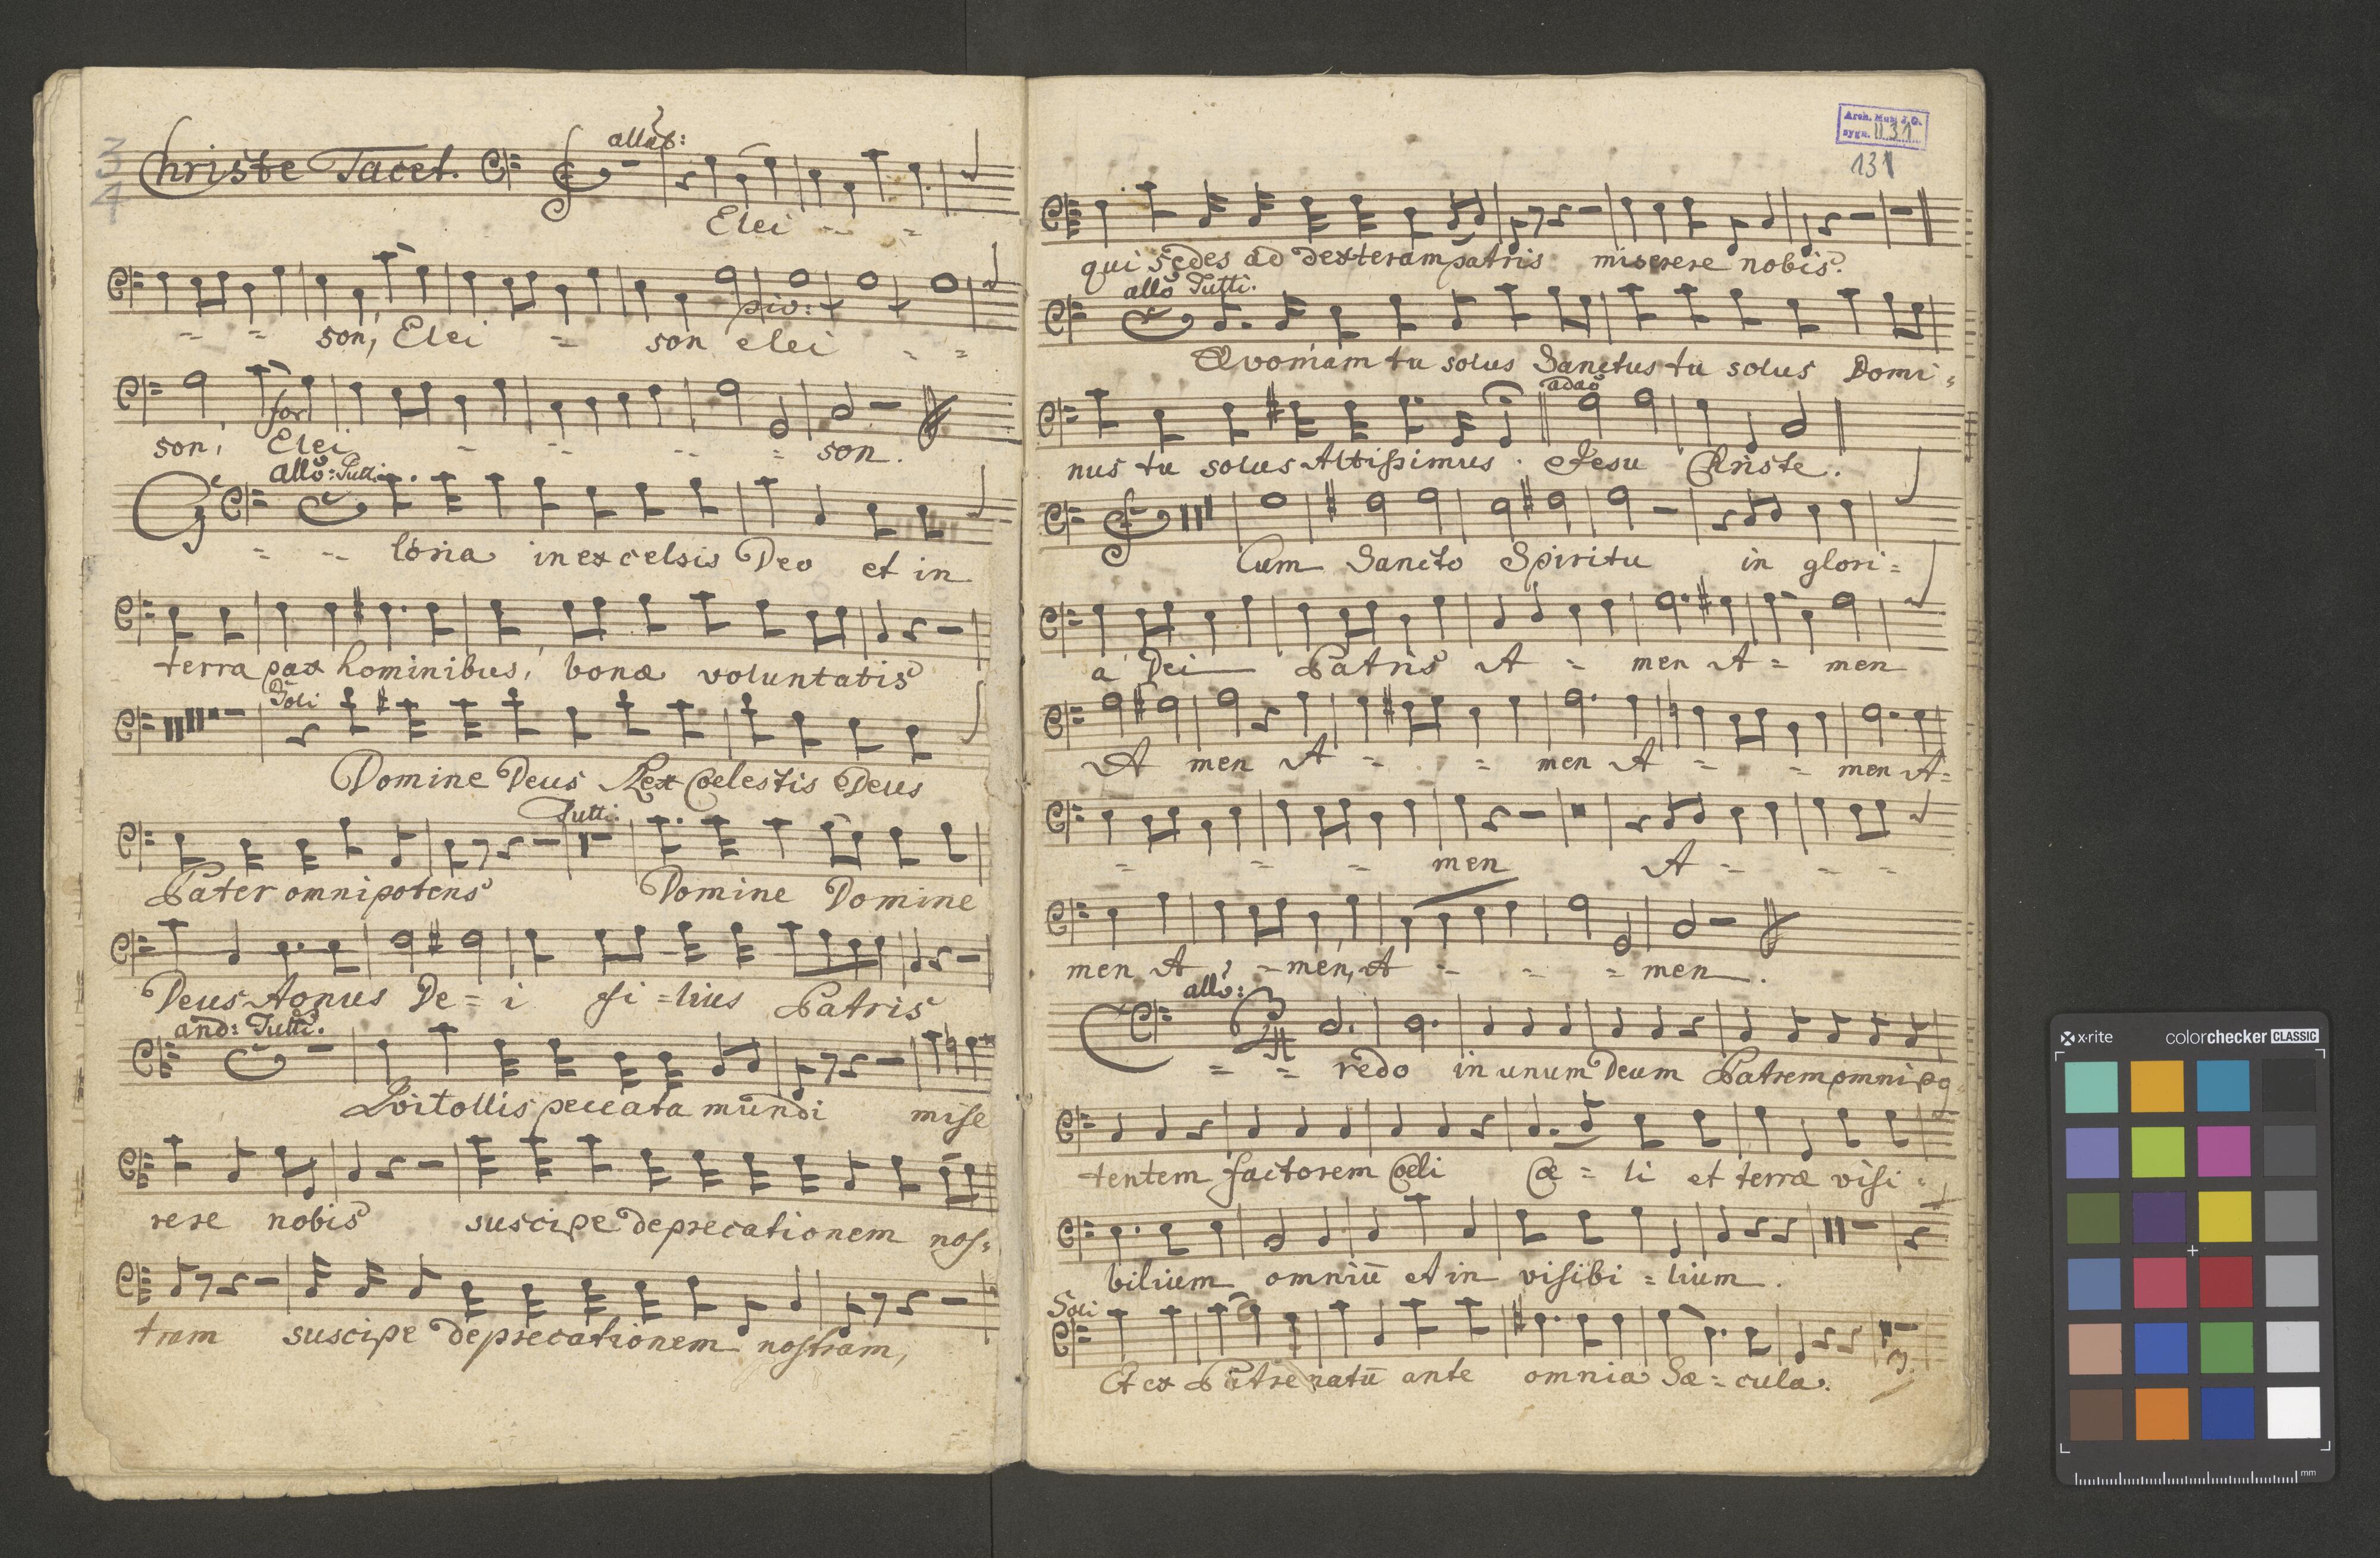 Christe Tacet.
allo:
Elei - - =
= = son, Elei = son elei - =
pio:
son, Elei - - - = son.
for
allo: Tutti
G = - loria in excelsis Deo et in
terra pax hominibus, bonæ voluntatis
Soli
Domine Deus Rex Coelestis Deus
Tutti.
Pater omnipotens Domine Domine
Deus Agnus De = i fi = lius Patris
and: Tutti.
Qvi tollis peccata mundi mise
rere nobis suscipe deprecationem nos =
tram suscipe deprecationem nostram,
Arch. Muz. J. G.
sygn. II.31
131
qui sedes ad dexteram patris miserere nobis.
allo Tutti.
Qvoniam tu solus Sanctus tu solus Domi =
adao
nus tu solus Altissimus. Jesu Christe.
Cum Sancto Spiritu in glori =
a Dei Patris A = men A = men
A men A = = men A = = men A =
= = = men A = - =
men A - men, A - - = men.
allo:
C = = redo in unum Deum Patrem omnipo
tentem factorem Coeli Cœ = li et terræ visi =
bilium omniū et in visibi = lium.
Soli
Et ex Patre natū ante omnia Sæ = cula.
x-rite
colorchecker CLASSIC
mm